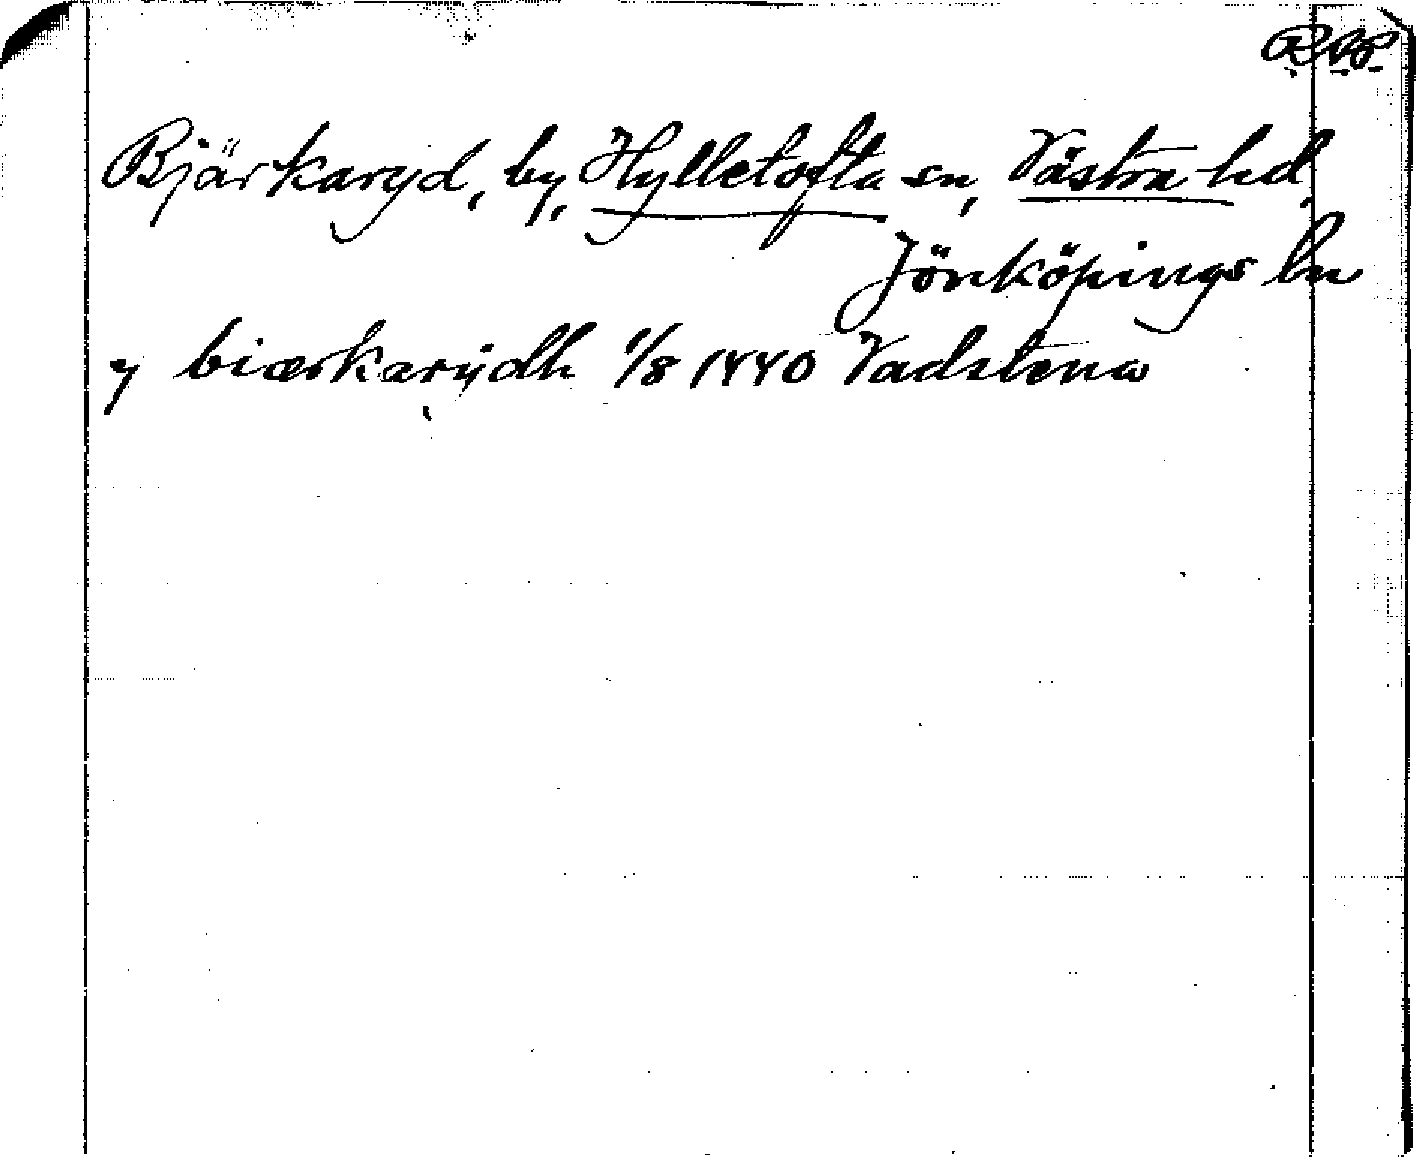 RAP
Bjärkaryd, by, Hylletofta sn, Västra hd,
Jönköpings ln
y biærkarydh 1/8 1440 Vadstena